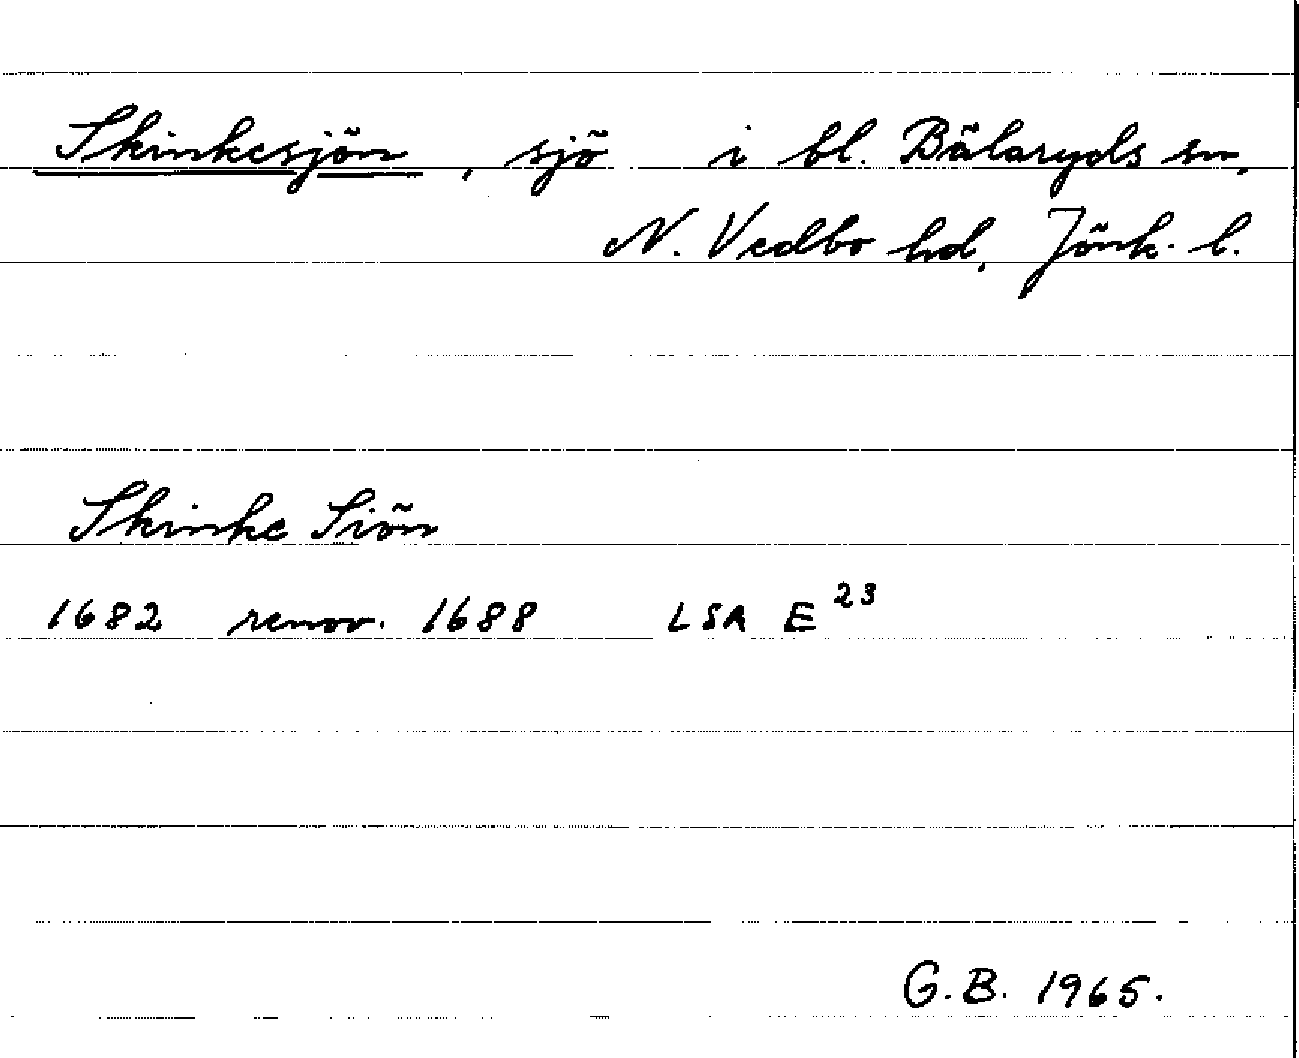 Skinkesjön, sjö i bl. Bälaryds sn,
N. Vedbo hd, Jönk. l.
Skinke Siön
1682 renov. 1688 LSA E 23
G. B. 1965.